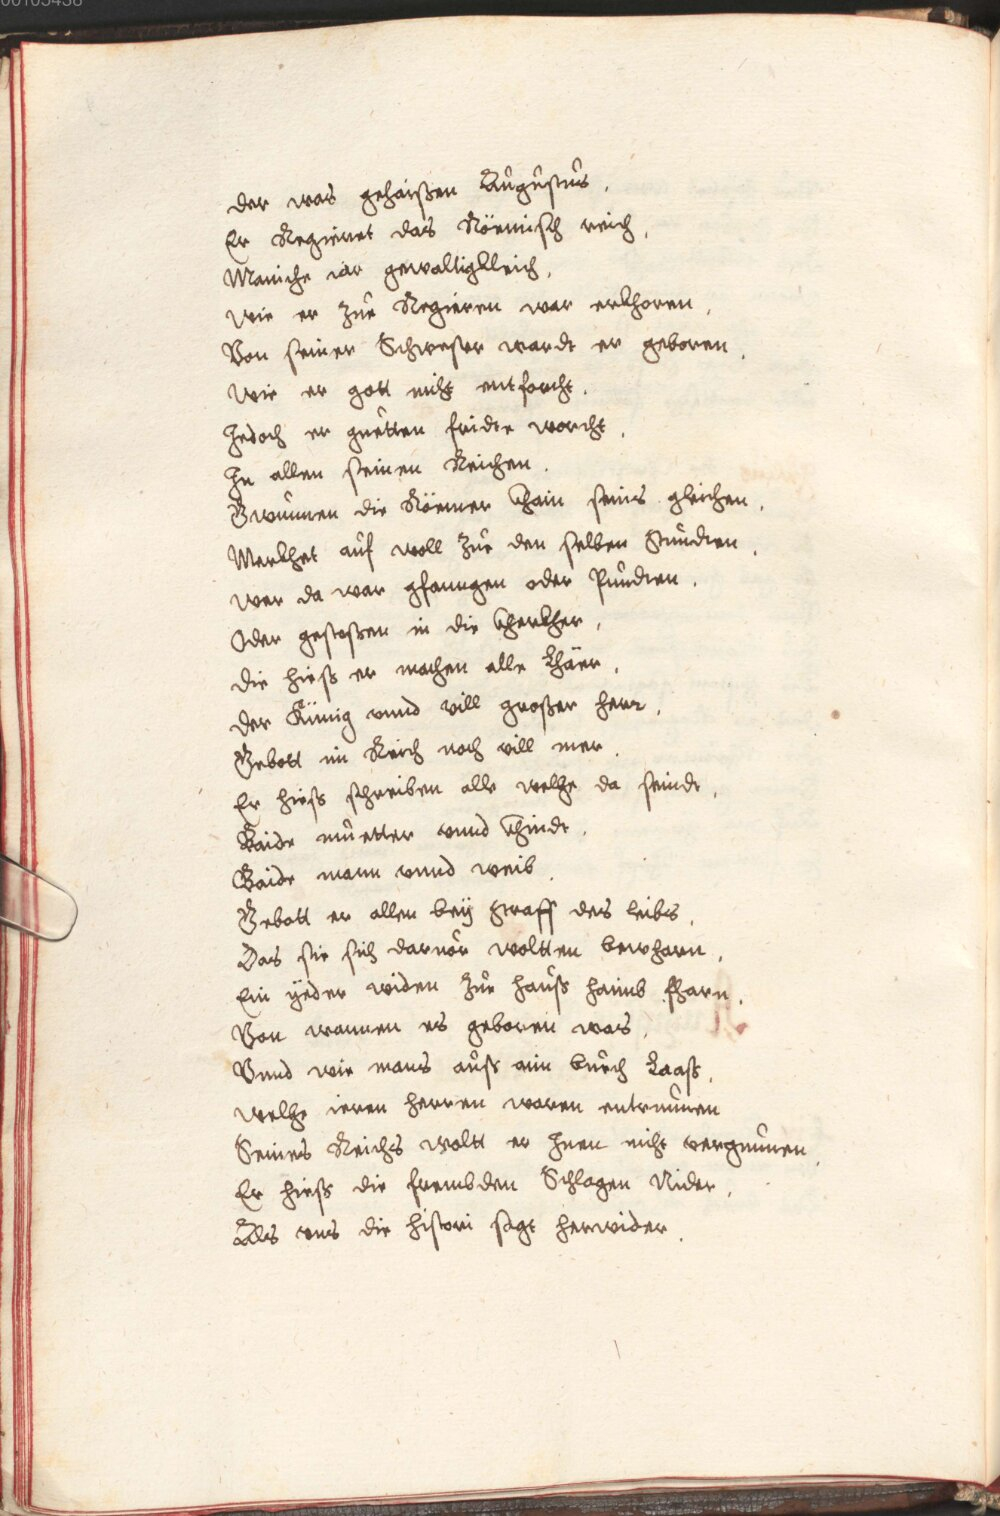 00105438
der was gehaißen Augustus.
Er Regieret das Römisch reich,
Maniche iar gewaltigkleich,
wie er zur Regieren war erkhoren,
Von seiner Schwester wardt er geboren,
wie er gott nicht entforcht,
Jedoch er guetten fridte worcht,
In allen seinen Reichen.
Gwunnen die Römer khain seins gleichen,
Merkhet auf woll zue den selben stundten,
wer da war gfanngen oder pundten,
Oder gestoßen in die kherkher,
die hieß er machen alle
der König vnnd vill großer herr,
Gebott im Reich noch vill mer.
Er hieß schreiben alle welche da seindt,
Baide muetter vnnd khindt,
Baide mann vnnd weib.
Gebott er allen bey straff des leibs,
Das sie sich daruor woltten bewharn,
Ein yeder widen zue hauß haimb fharn,
Von wannen es geboren was,
Vnnd wie mans auß ain buech laaß,
welche ieren herren waren entrunnen
Seines Reichs woltt er Inen nicht vergunnen,
Er hieß die frembden Schlagen Nider,
Als vns die histori sagt herwider.